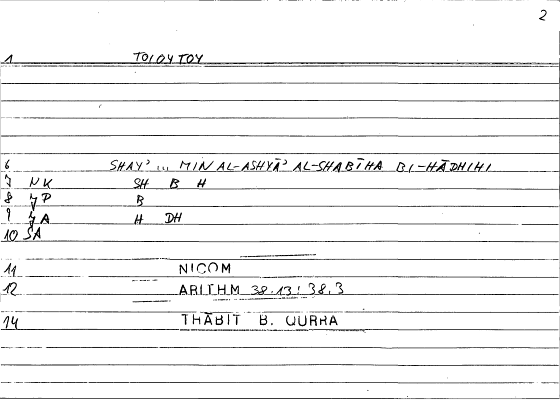 2
1 TOIOYTOY
6 SHAYʾ ... MIN AL-ASHYĀʾ AL-SHABĪHA BI-HĀDHIHI
7 NK SH B H
8 JP B
9 JA H DH
10 SA
11 NICOM
12 ARITHM 38.13; 38.3
14 THĀBIT B. QURRA